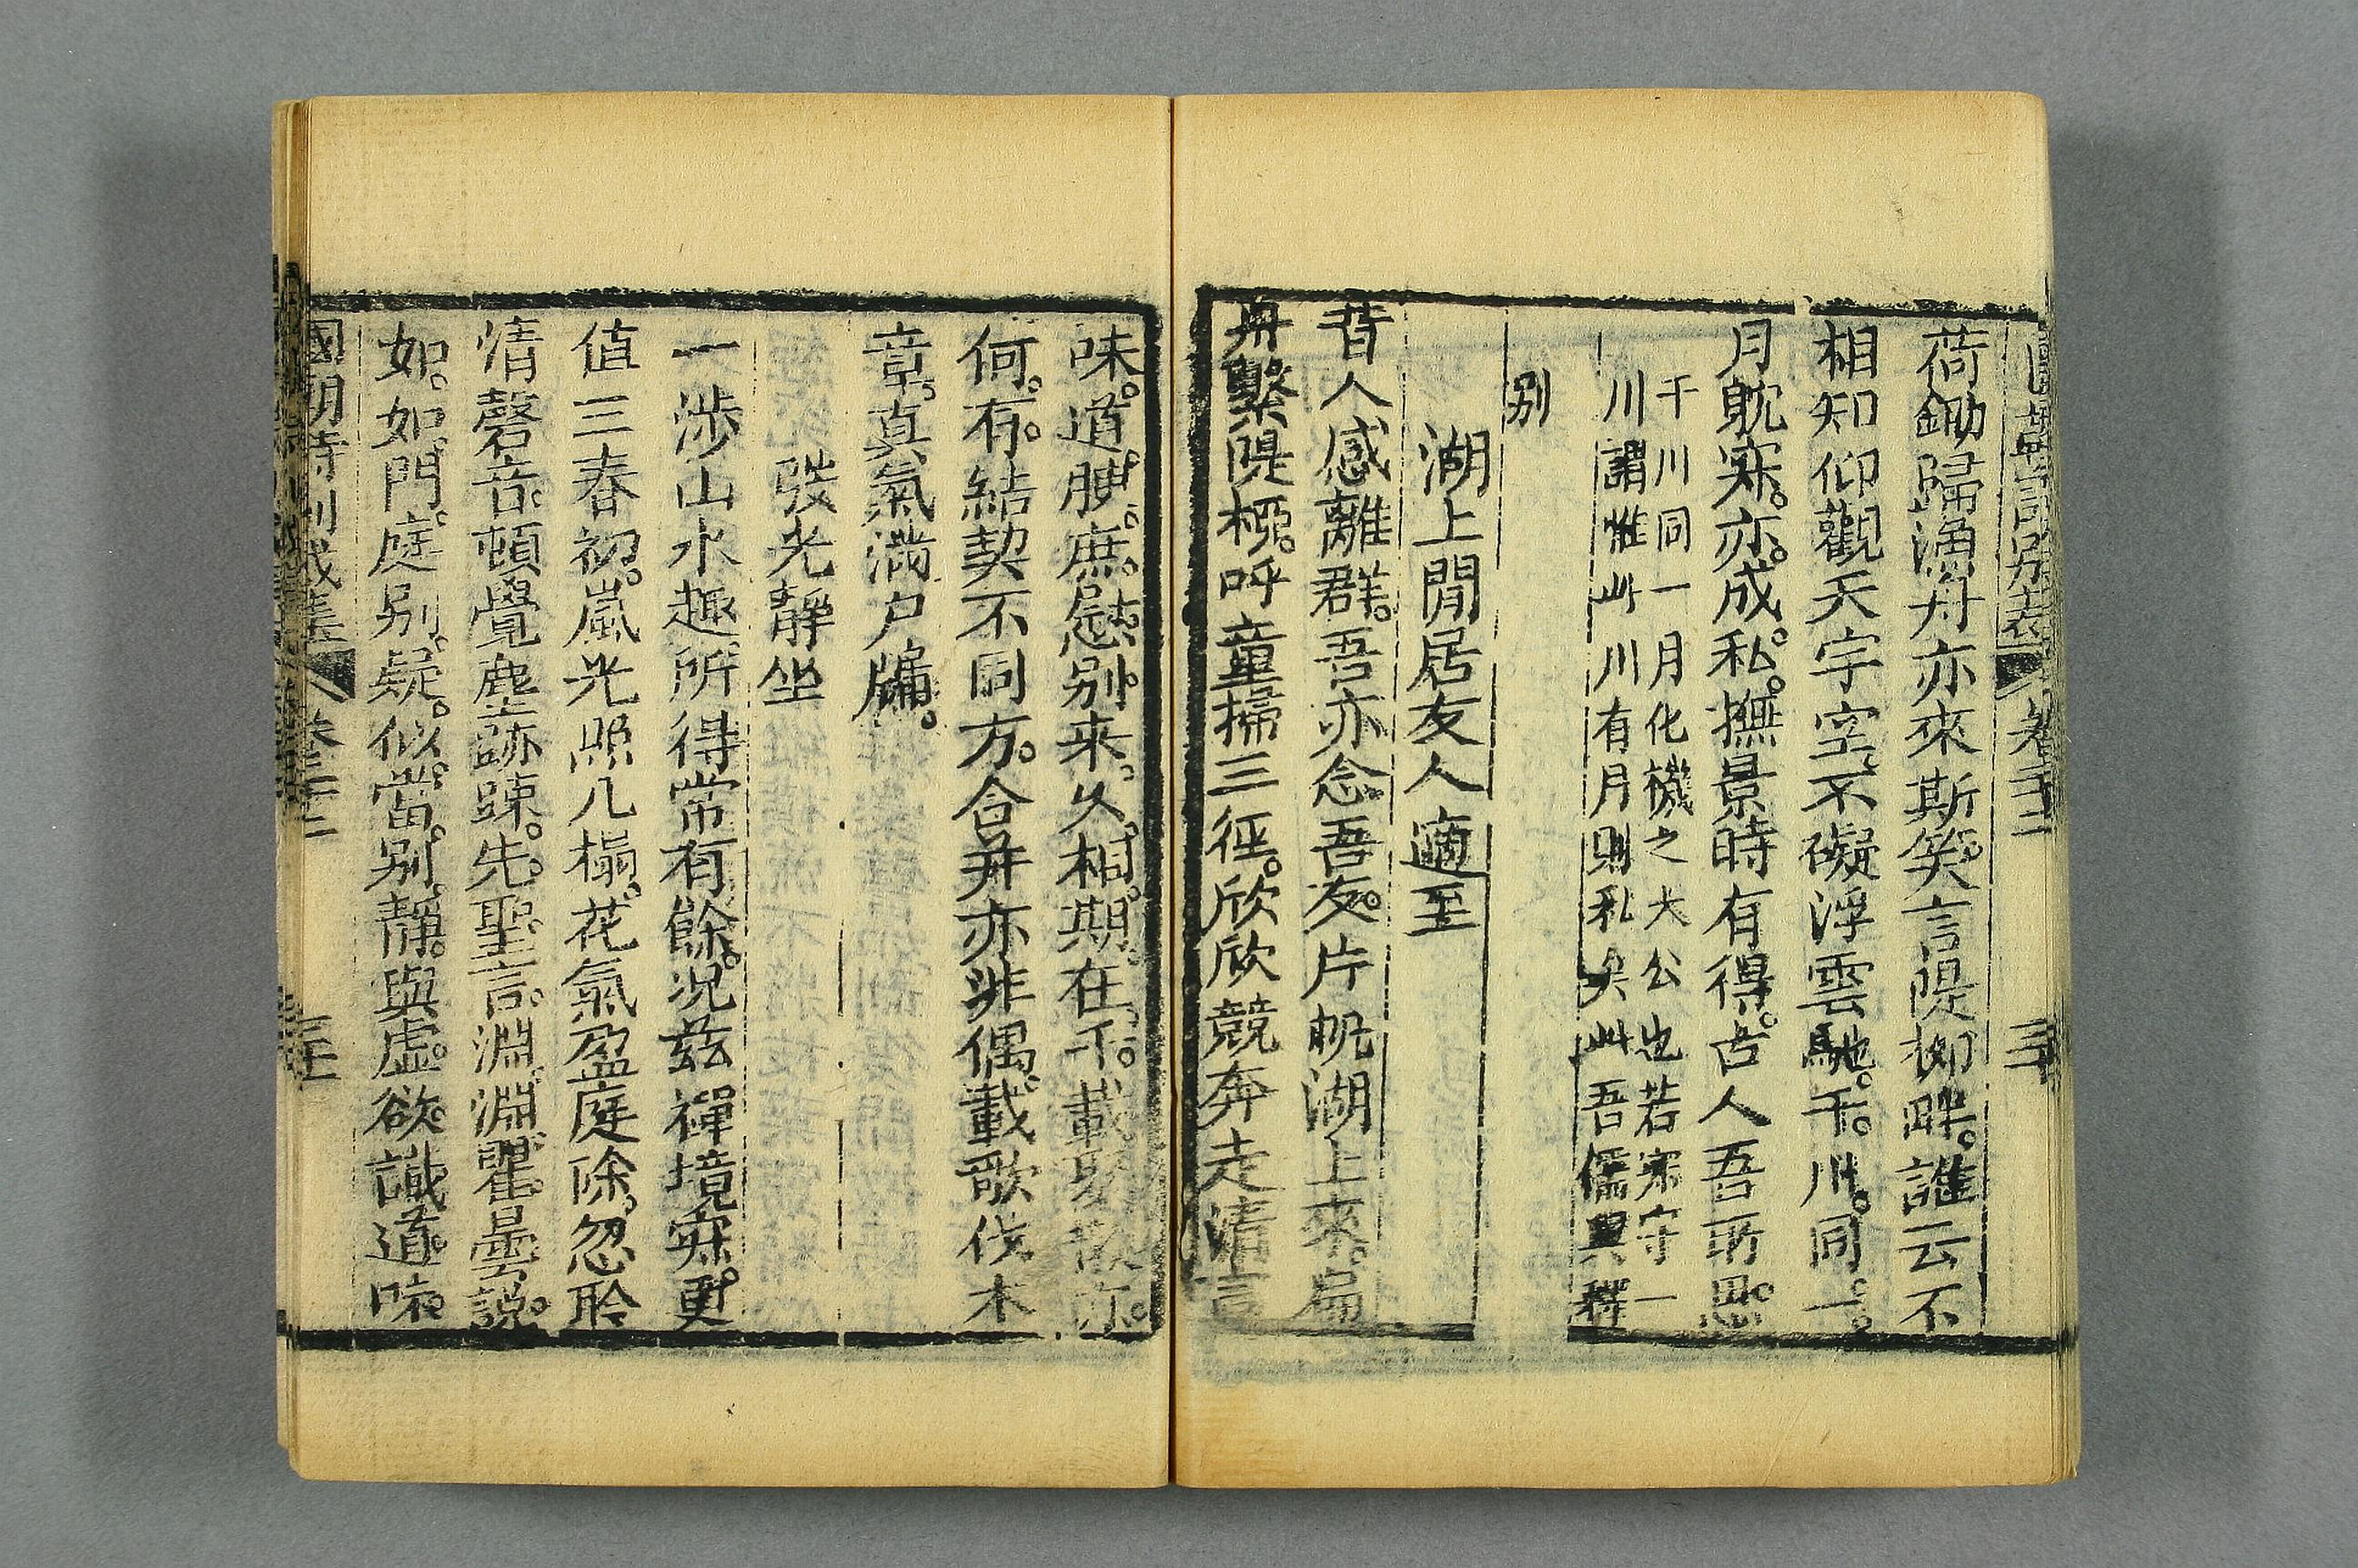 荷鋤歸漁舟亦來斯笑言隄柳畔。誰云不
相知仰觀天宇空不礙浮雲馳。千。川。同。一。
月躭寐。亦。成。私。撫景時有得。古人吾所思。
千川同一月化機之大公也若寐守一
川謂惟此川有月則私矣此吾儒與釋
别
湖上閒居友人適至
昔人感離群。吾亦念吾友。片帆湖上來。扁
舟繫隄柳。呼童掃三徑。欣欣競奔走清言
味。道。腴。庶。慰。别。来。久。相。期。在。千。載聚散亦。
何。有。結契不同方。合并亦非偶。載歌伐木
章。真氣滿户牖。
弢光靜坐
一涉山水趣所得常有餘。况兹禪境寐。更
值三春初。嵐光照几榻。花氣盈庭除。忽聆
清磬音。頓覺塵跡疎。先。聖。言。淵。淵。瞿。曇。說。
如。如。門。庭别。疑。似。當。别。靜。與虛。欲識道。味。
國朝詩别裁集 卷三十二 三十